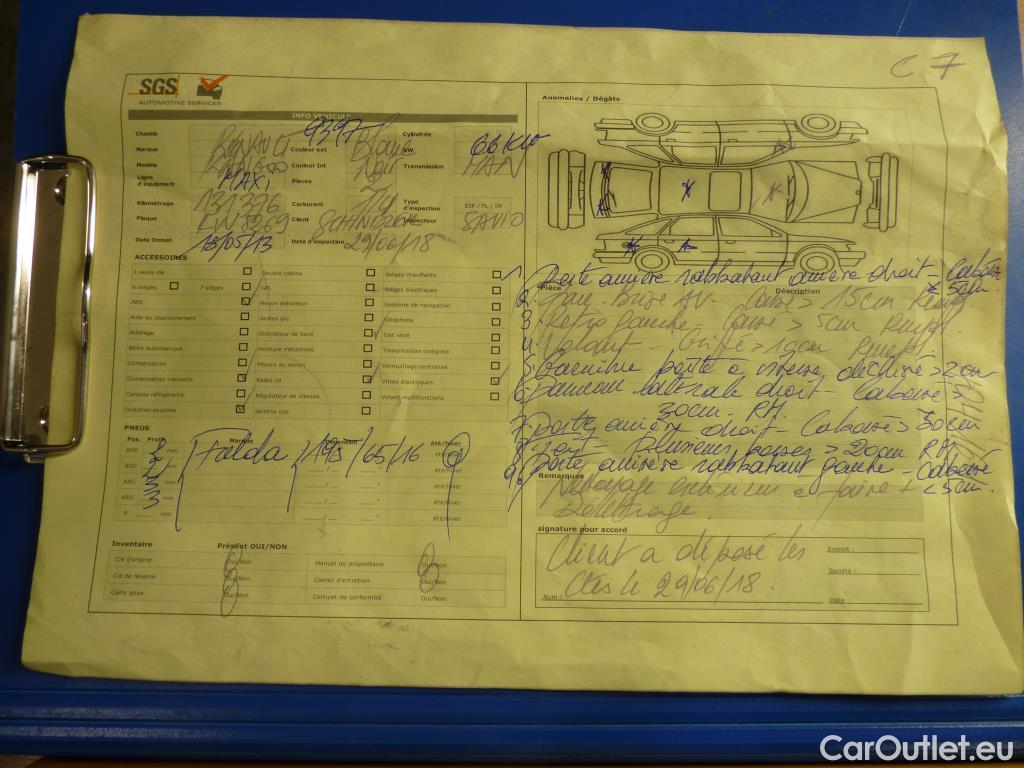 C 7
SGS
AUTOMOTIVE SERVICES
INFO VEHICULE
Chassis 9397 Cylindrée
Marque RENAULT Couleur ext Blanc KW 66KW
Modèle KANGOO Couleur Int Noir Transmission MAN
Ligne d'équipement MAXI Places 2
Kilométrage 131376 Carburant Type d'inspection ESP / PL / IM
Plaque Client SCHINDLER Inspecteur SAVIO
Date Immat 18/05/13 Date d'inspection 29/06/18
ACCESSOIRES
1 seule clé Double cabine Sièges chauffants
6 sièges 7 sièges GPL Sièges électriques
ABS Hayon élévateur Système de navigation
Aide au stationnement Jantes alu Téléphone
Attelage Ordinateur de bord Toit vitré
Boîte Automatique Peinture métallisée Transmission intégrale
Climatisation Phares au xénon Verrouillage centralisé
Climatisation manuelle Radio cd Vitres électriques
Caisse réfrigérante Régulateur de vitesse Volant multifonctions
Direction assistée Sellerie cuir
PNEUS
Pos. Profil Marque Dimension été/hiver
AVG mm Fulda 195/65/16 été/hiver
AVD mm été/hiver
ARG 3 mm été/hiver
ARD 3 mm été/hiver
R mm été/hiver
Inventaire Présent OUI/NON
Clé d'origine Oui/Non Manuel de propriétaire Oui/Non
Clé de réserve Oui/Non Carnet d'entretien Oui/Non
Carte grise Oui/Non Carticat de conformité Oui/Non
Anomalies / Dégâts
Pièce Description
1. Porte arrière rabbatant arrière droit - Cabossé < 5cm.
2. Pare-Brise AV - Cassé > 15cm Rempl.
3. Retro gauche - Cassé > 5cm Rempl.
4. Volant - Griffé > 10cm Rempl.
5. Garniture porte arrière déchiré > 2cm
6. Panneau latérale droit Cabossé > 30cm. RH.
7. Porte arrière droit - Cabossé > 30cm
8. Toit - Plusieurs bosses > 20cm RH
9. Porte arrière rabbatant gauche - Cabossé < 5cm.
Remarques
Nettoyage extérieur à faire +
Delettrage.
signature pour accord
Client a déposé les
Clés le 29/06/18.
Endroit :
Société :
Nom : Date :
CarOutlet.eu